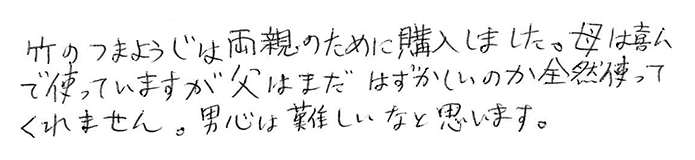 竹のつまようじは両親のために購入しました。母は喜ん
で使っていますが父はまだはずかしいのか全然使って
くれません。男心は難しいなと思います。